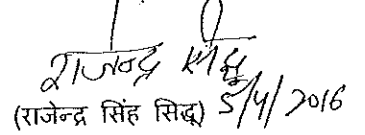 राजेन्द्र सिंह
(राजेन्द्र सिंह सिद्धू) 5/4/2016